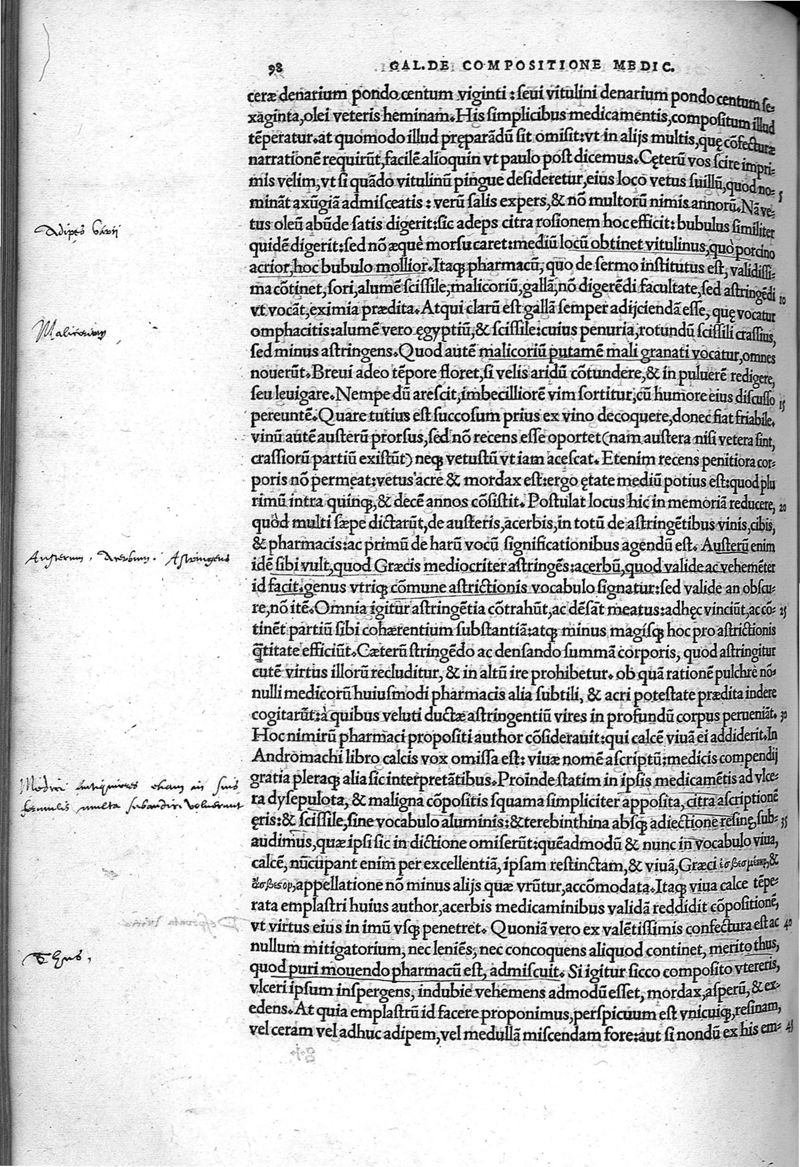 98 GAL. DE COMPOSITIONE MEDIC.
ceræ denarium pondo centum viginti: seui vitulini denarium pondo centum se-
xaginta, olei veteris heminam. His simplicibus medicamentis, compositum illud
tēperatur. at quomodo illud pręparādū sit omisit: vt in alijs multis, quę cōfecturæ
narrationē requirūt, facilē alioquin vt paulo post dicemus. Cęterū vos scire impri-
mis velim, vt si quādo vitulinū pingue desideretur, eius loco vetus suillū, quod no- 5
mināt axūgiā admisceatis: verū salis expers, & nō multorū nimis annorū. Nā ve-
tus oleū abūde satis digerit: sic adeps citra rosionem hoc efficit: bubulus similiter
Adipes
quidē digerit: sed nō æquè morsu caret: mediū locū obtinet vitulinus, quò porcino
acrior, hoc bubulo mollior. Itaq; pharmacū, quo de sermo institutus est, validissi-
ma cōtinet, sori, alumē scissile, malicoriū, gallā, nō digerēdi facultate, sed astringēdi 10
vt vocāt, eximia prædita. Atqui clarū est gallā semper adijciendā esse, quę vocatur
Malicorium
omphacitis: alumē vero ęgyptiū, & scissile: cuius penuria, rotundū scissili crassius,
sed minus astringens. Quod autē malicoriū putamē mali granati vocatur, omnes
nouerūt. Breui adeo tēpore floret, si velis aridū cōtundere, & in puluerē redigere,
seu leuigare. Nempe dū arescit, imbecilliorē vim sortitur, cū humore eius discusso 15
pereuntē. Quare tutius est succosum prius ex vino decoquere, donec fiat friabile.
vinū autē austerū prorsus, sed nō recens esse oportet (nam austera nisi vetera sint,
crassiorū partiū existūt) neq; vetustū vt iam acescat. Etenim recens penitiora cor-
poris nō permeat: vetus acre & mordax est: ergo ętate mediū potius est: quod plu
rimū intra quinq;, & decē annos cōsistit. Postulat locus hic in memoriā reducere, 20
quòd multi sæpe dictarūt, de austeris, acerbis, in totū de astringētibus vinis, cibis,
& pharmacis: ac primū de harū vocū significationibus agendū est. Austerū enim
Austerum. Acerbum. Astringens
idē sibi vult, quod Græcis mediocriter astringēs: acerbū, quod valide ac vehemēter
id facit. genus vtriq; cōmune astrictionis vocabulo signatur: sed valide an obscu-
re, nō itē. Omnia igitur astringētia cōtrahūt, ac dēsāt meatus: adhęc vinciūt, ac cō- 25
tinēt partiū sibi cohærentium substantiā: atq; minus magisq; hoc pro astrictionis
q̄titate efficiūt. Cæterū stringēdo ac densando summā corporis, quod astringitur
cutē virtus illorū recluditur, & in altū ire prohibetur. ob quā rationē pulchre nō-
nulli medicorū huiusmodi pharmacis alia subtili, & acri potestate prædita indere
cogitarūt: à quibus veluti ductæ astringentiū vires in profundū corpus perueniāt. 30
Hoc nimirū pharmaci propositi author cōsiderauit: qui calcē viuā ei addiderit. In
Andromachi libro calcis vox omissa est: viuæ nomē ascriptū: medicis compendij
gratia pleraq; alia sic interpretātibus. Proinde statim in ipsis medicamētis ad vlce-
Medici antiquiores etiam in suis
formulis multa subaudiri voluerunt
ra dysepulota, & maligna cōpositis squama simpliciter apposita, citra ascriptionē
ęris: & scissile, sine vocabulo aluminis: & terebinthina absq; adiectione resinę, sub- 35
audimus, quæ ipsi sic in dictione omiserūt: quēadmodū & nunc in vocabulo viua,
calcē, nūcupant enim per excellentiā, ipsam restinctam, & viuā, Græci ἐσβεσμένην, &
ἄσβεσον, appellatione nō minus alijs quæ vrūtur, accōmodata. Itaq; viua calce tēpe-
rata emplastri huius author, acerbis medicaminibus validā reddidit cōpositionē,
vt virtus eius in imū vsq; penetret. Quoniā vero ex valētissimis confectura est ac 40
nullum mitigatorium, nec leniēs, nec concoquens aliquod continet, merito thus,
Thus,
quod puri mouendo pharmacū est, admiscuit. Si igitur sicco composito vtereris,
vlceri ipsum inspergens, indubie vehemens admodū esset, mordax, asperū, & ex-
edens. At quia emplastrū id facere proponimus, perspicuum est vnicuiq;, resinam,
vel ceram vel adhuc adipem, vel medullā miscendam fore: aut si nondū ex his em- 45